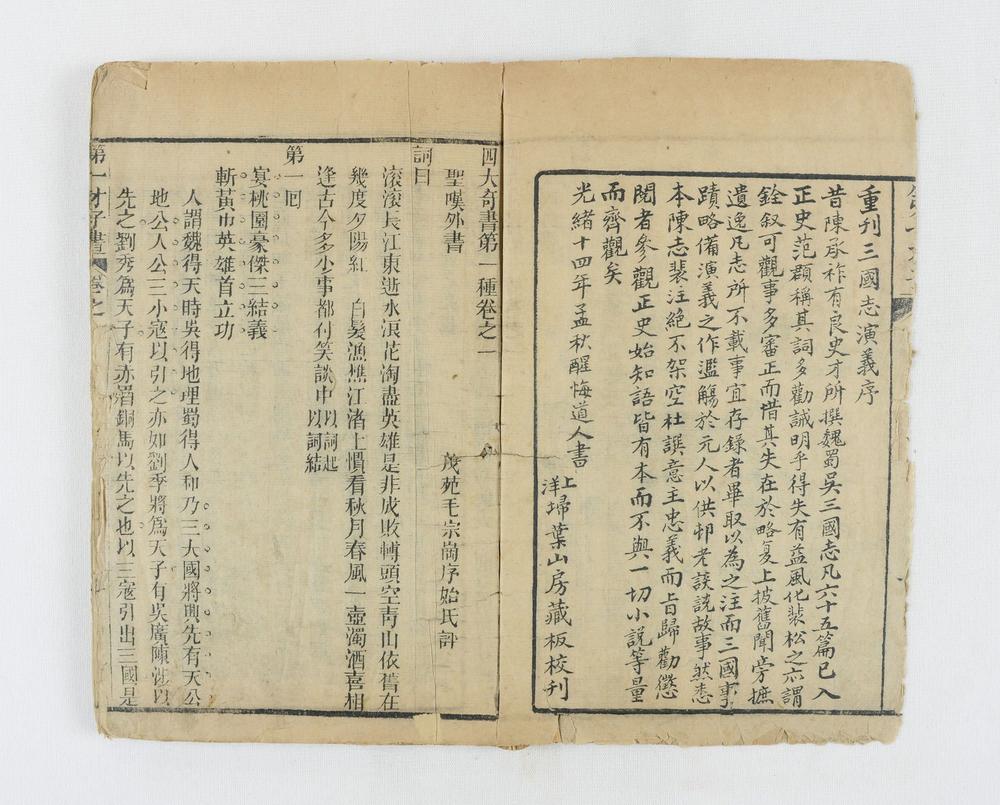 重刊三國志演義序
昔陳承祚有良史才所撰魏蜀吳三國志凡六十五篇已入
正史范頵稱其詞多勸誡明乎得失有益風化裴松之亦謂
銓叙可觀事多審正而惜其失在於略复上披舊聞旁摭
遺逸凡志所不載事宜存錄者畢取以為之注而三國事
蹟略備演義之作濫觴於元人以供邨老談説故事然悉
本陳志裴注絕不架空杜譔意主忠義而旨歸勸懲
閱者參觀正史始知語皆有本而不與一切小說等量
而齊觀矣
光緒十四年孟秋醒悔道人書
上洋埽葉山房藏板校刊
四大奇書第一種卷之一
聖嘆外書
茂苑毛宗崗序始氏評
詞曰
滾滾長江東逝水浪花淘盡英雄是非成敗轉頭空青山依舊在
幾度夕陽紅 白髮漁樵江渚上慣看秋月春風一壺濁酒喜相
逢古今多少事都付笑談中以詞起以詞結
第一回
宴桃園豪傑三結義
斬黃巾英雄首立功
人謂魏得天時吳得地理蜀得人和乃三大國將興先有天公
地公人公三小寇以引之亦如劉季將為天子有吳廣陳涉以
先之劉秀爲天子有赤眉銅馬以先之也以三寇引出三國是
第一才子書 卷之一